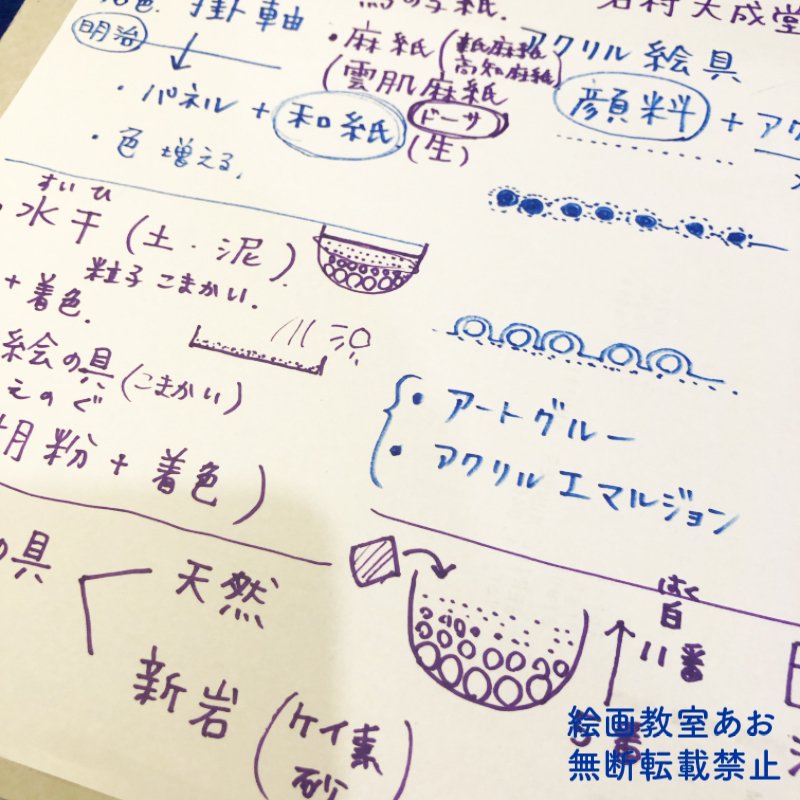 掛軸
明治
・パネル + 和紙
・色増える。
・麻紙
高知麻紙
(雲肌麻紙
ドーサ
(生)
アクリル絵具
顔料 + アク
すいひ
水干 (土・泥)
粒子こまかい.
+ 着色.
絵の具 (こまかい)
えのぐ
胡粉 + 着色)
・アートグルー
・アクリルエマルジョン
の具
天然
新岩
(ケイ素
砂
はく
白
11番
番
絵画教室あお
無断転載禁止